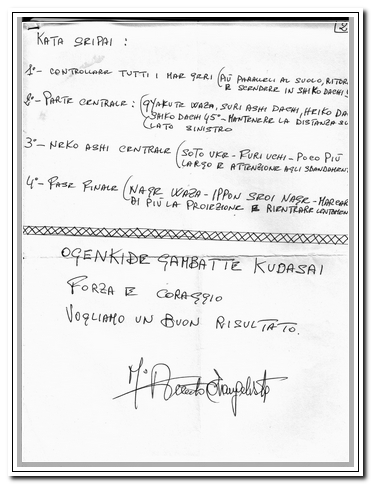 2
KATA SEIPAI :
1°- CONTROLLARE TUTTI I MAE GERI (PIÙ PARALLELI AL SUOLO, RITOR
E SCENDERE IN SHIKO DACHI!
2°- PARTE CENTRALE : (GYAKUTE WAZA, SURI ASHI DACHI, HEIKO DA
SHIKO DACHI 45° - MANTENERE LA DISTANZA SU
LATO SINISTRO
3°- NEKO ASHI CENTRALE (SOTO UKE - FURI UCHI - POCO PIÙ
LARGO E ATTENZIONE AGLI SBANDAMEN
4°- FASE FINALE (NAGE WAZA - IPPON SEOI NAGE - MARCAR
DI PIÙ LA PROIEZIONE E RIENTRARE LENTAMEN
OGENKIDE GAMBATTE KUDASAI
FORZA E CORAGGIO
VOGLIAMO UN BUON RISULTATO.
M°